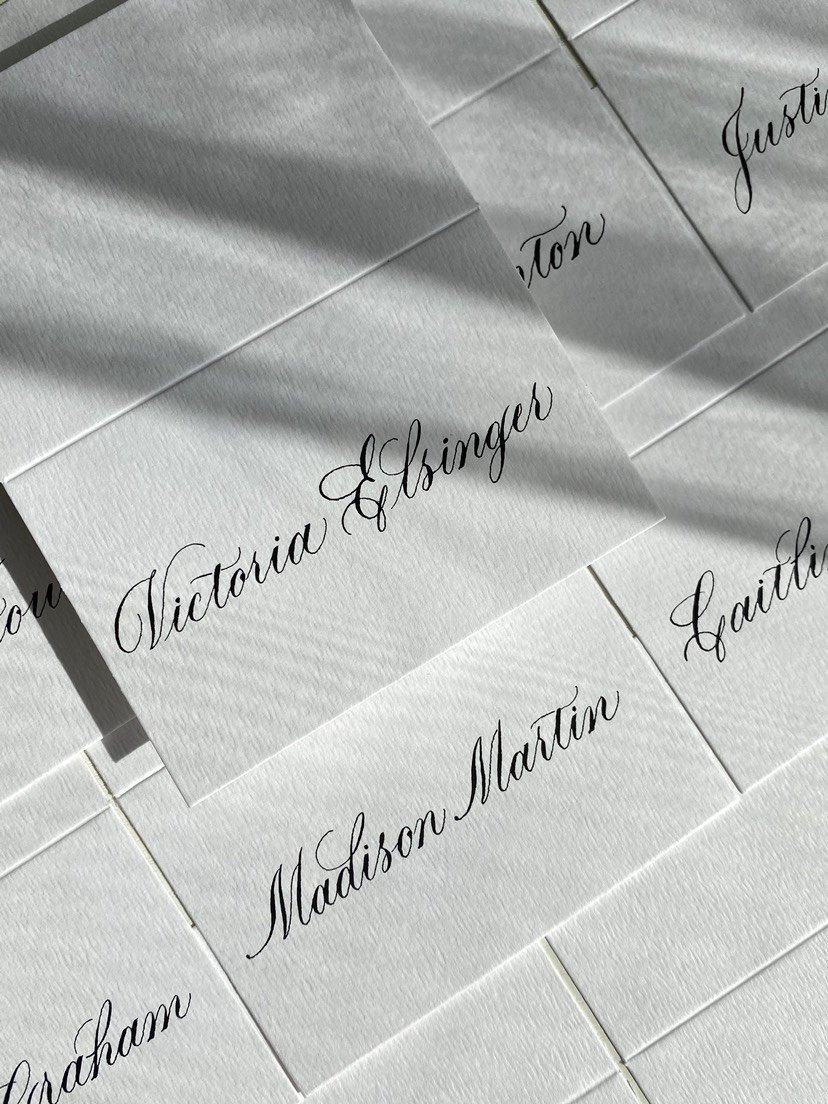 Justi
ton
Victoria Elsinger
Caitli
ou
Madison Martin
Graham